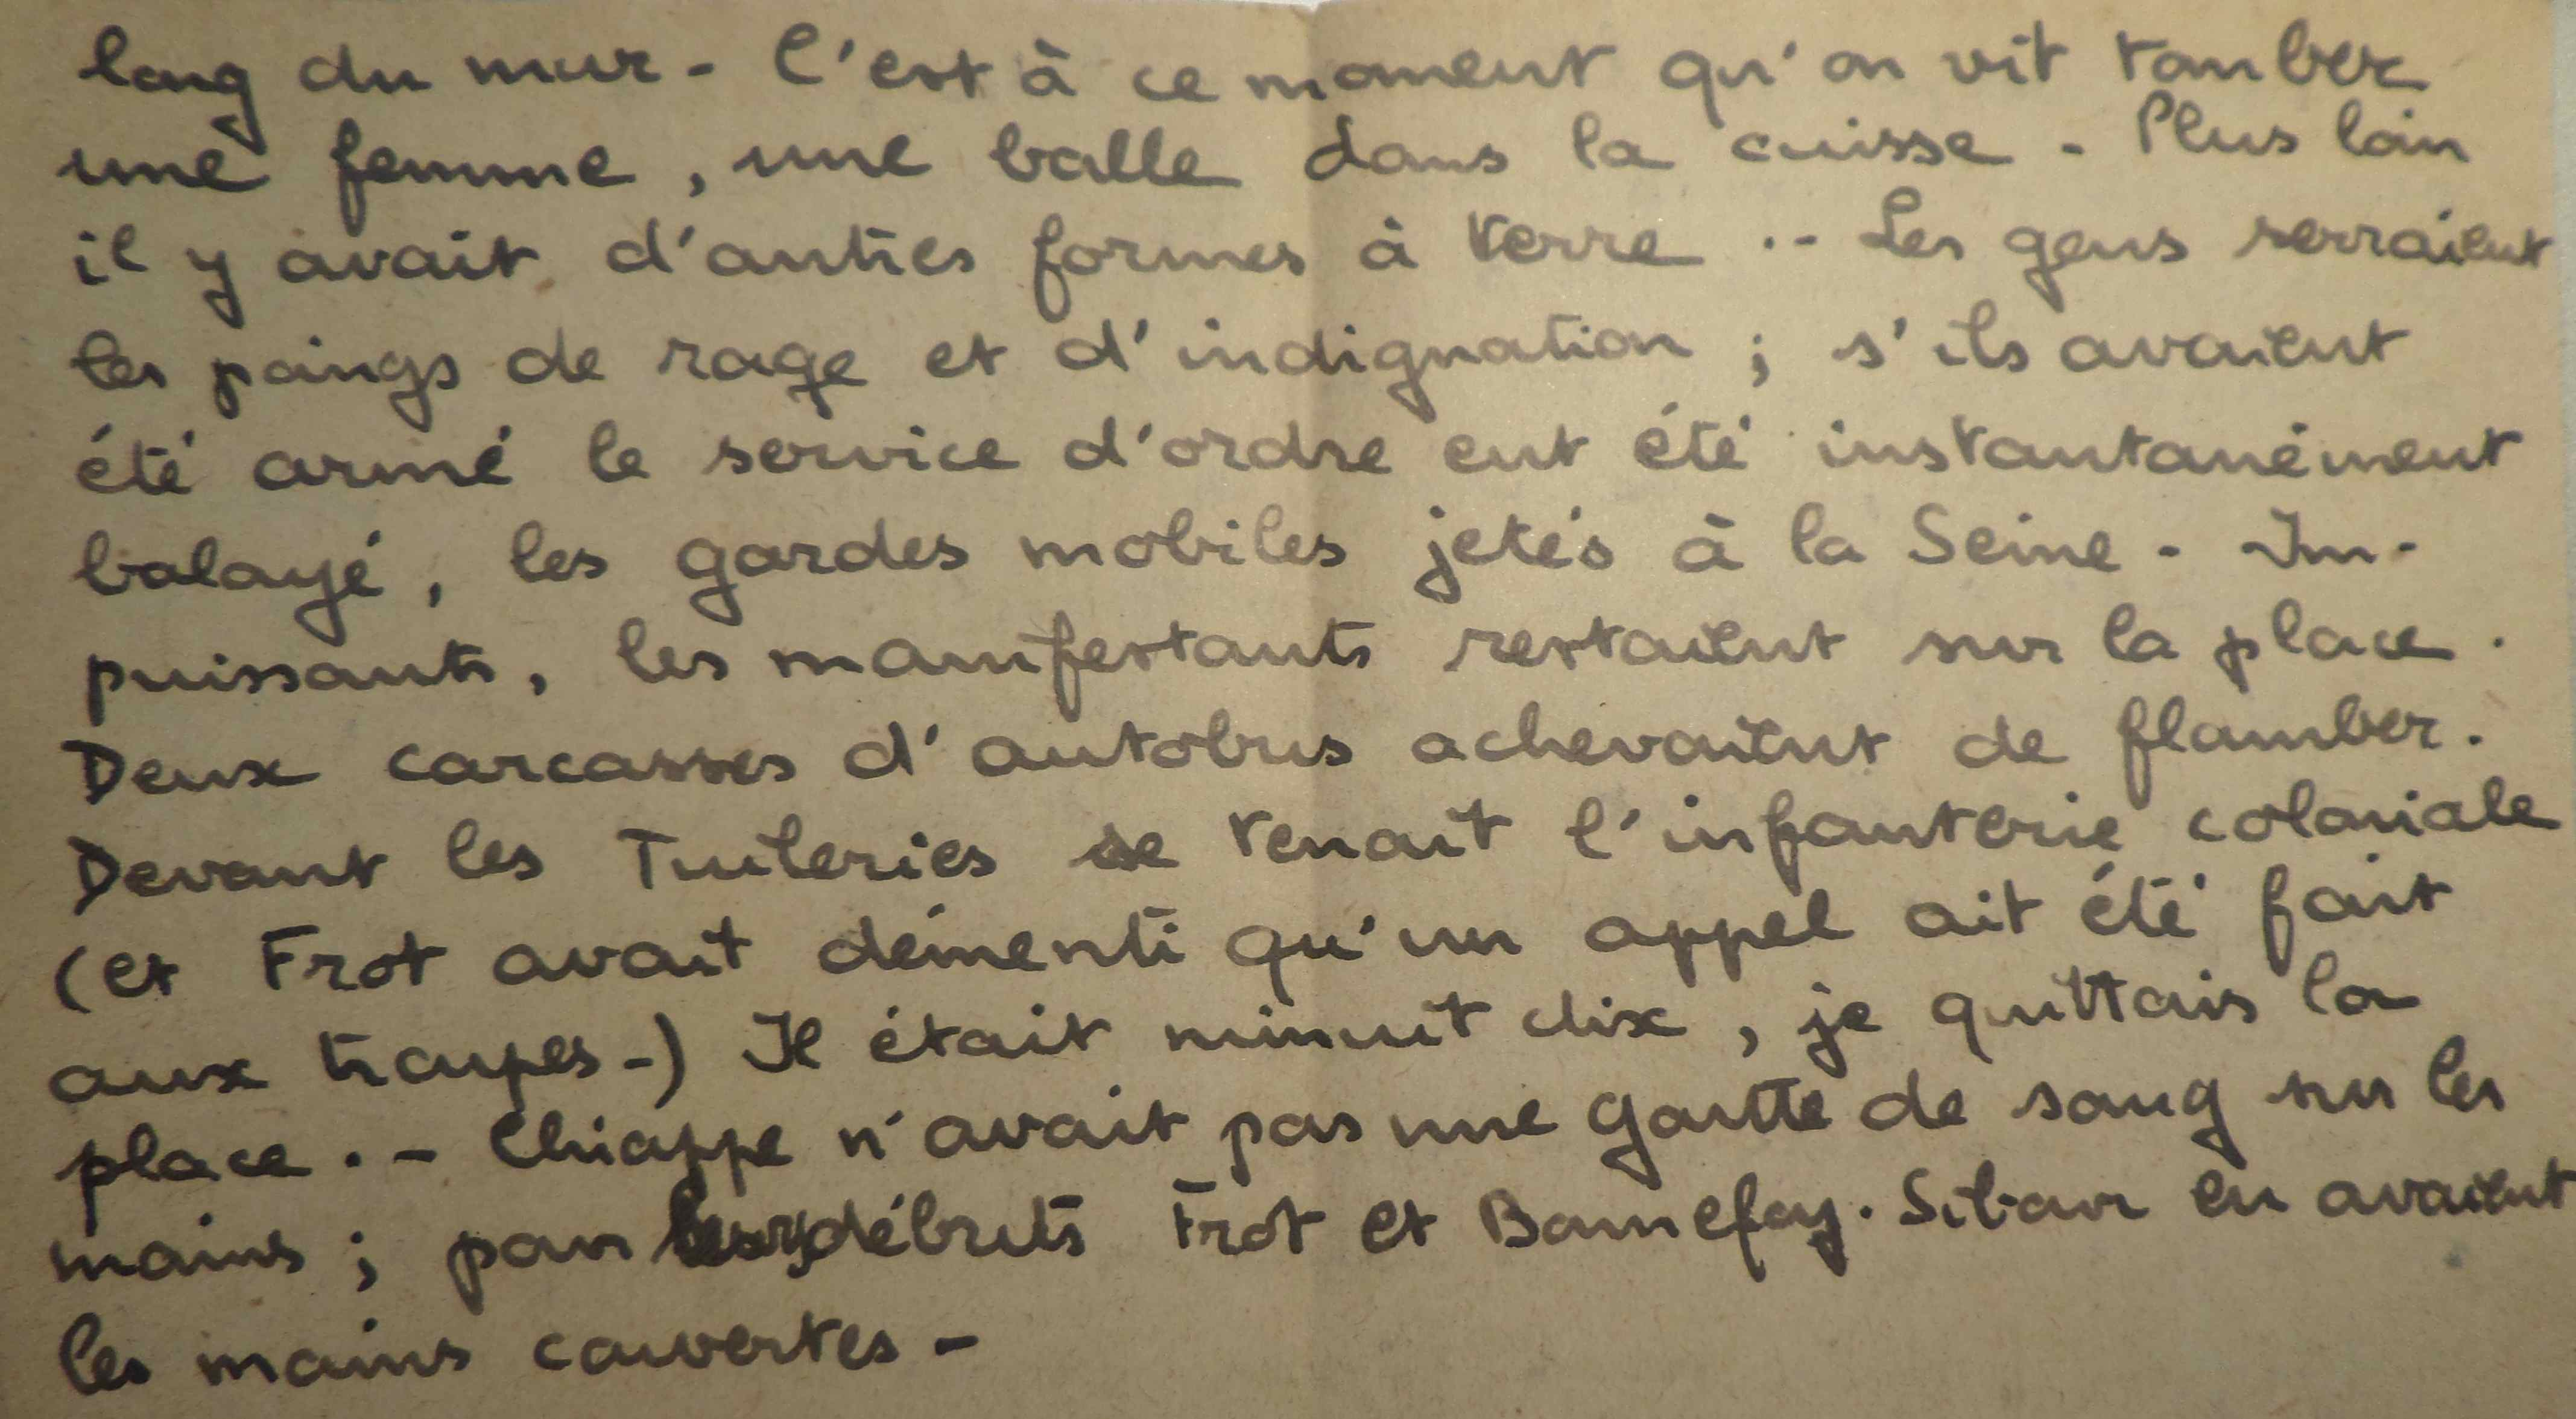 long du mur - C'est à ce moment qu'on vit tomber
une femme, une balle dans la cuisse - Plus loin
il y avait d'autres formes à terre .- Les gens serraient
les poings de rage et d'indignation ; s'ils avaient
été armé le service d'ordre eut été instantanément
balayé, les gardes mobiles jetés à la Seine - Im-
puissants, les manifestants restaient sur la place.
Deux carcasses d'autobus achevaient de flamber.
Devant les Tuileries se tenait l'infanterie coloniale
(et Frot avait démenti qu'un appel ait été fait
aux troupes-) Il était minuit dix, je quittais la
place .- Chiappe n'avait pas une goutte de sang sur les
mains ; pour débuts Frot et Bonnefoy. Sibour en avaient
les mains couvertes -